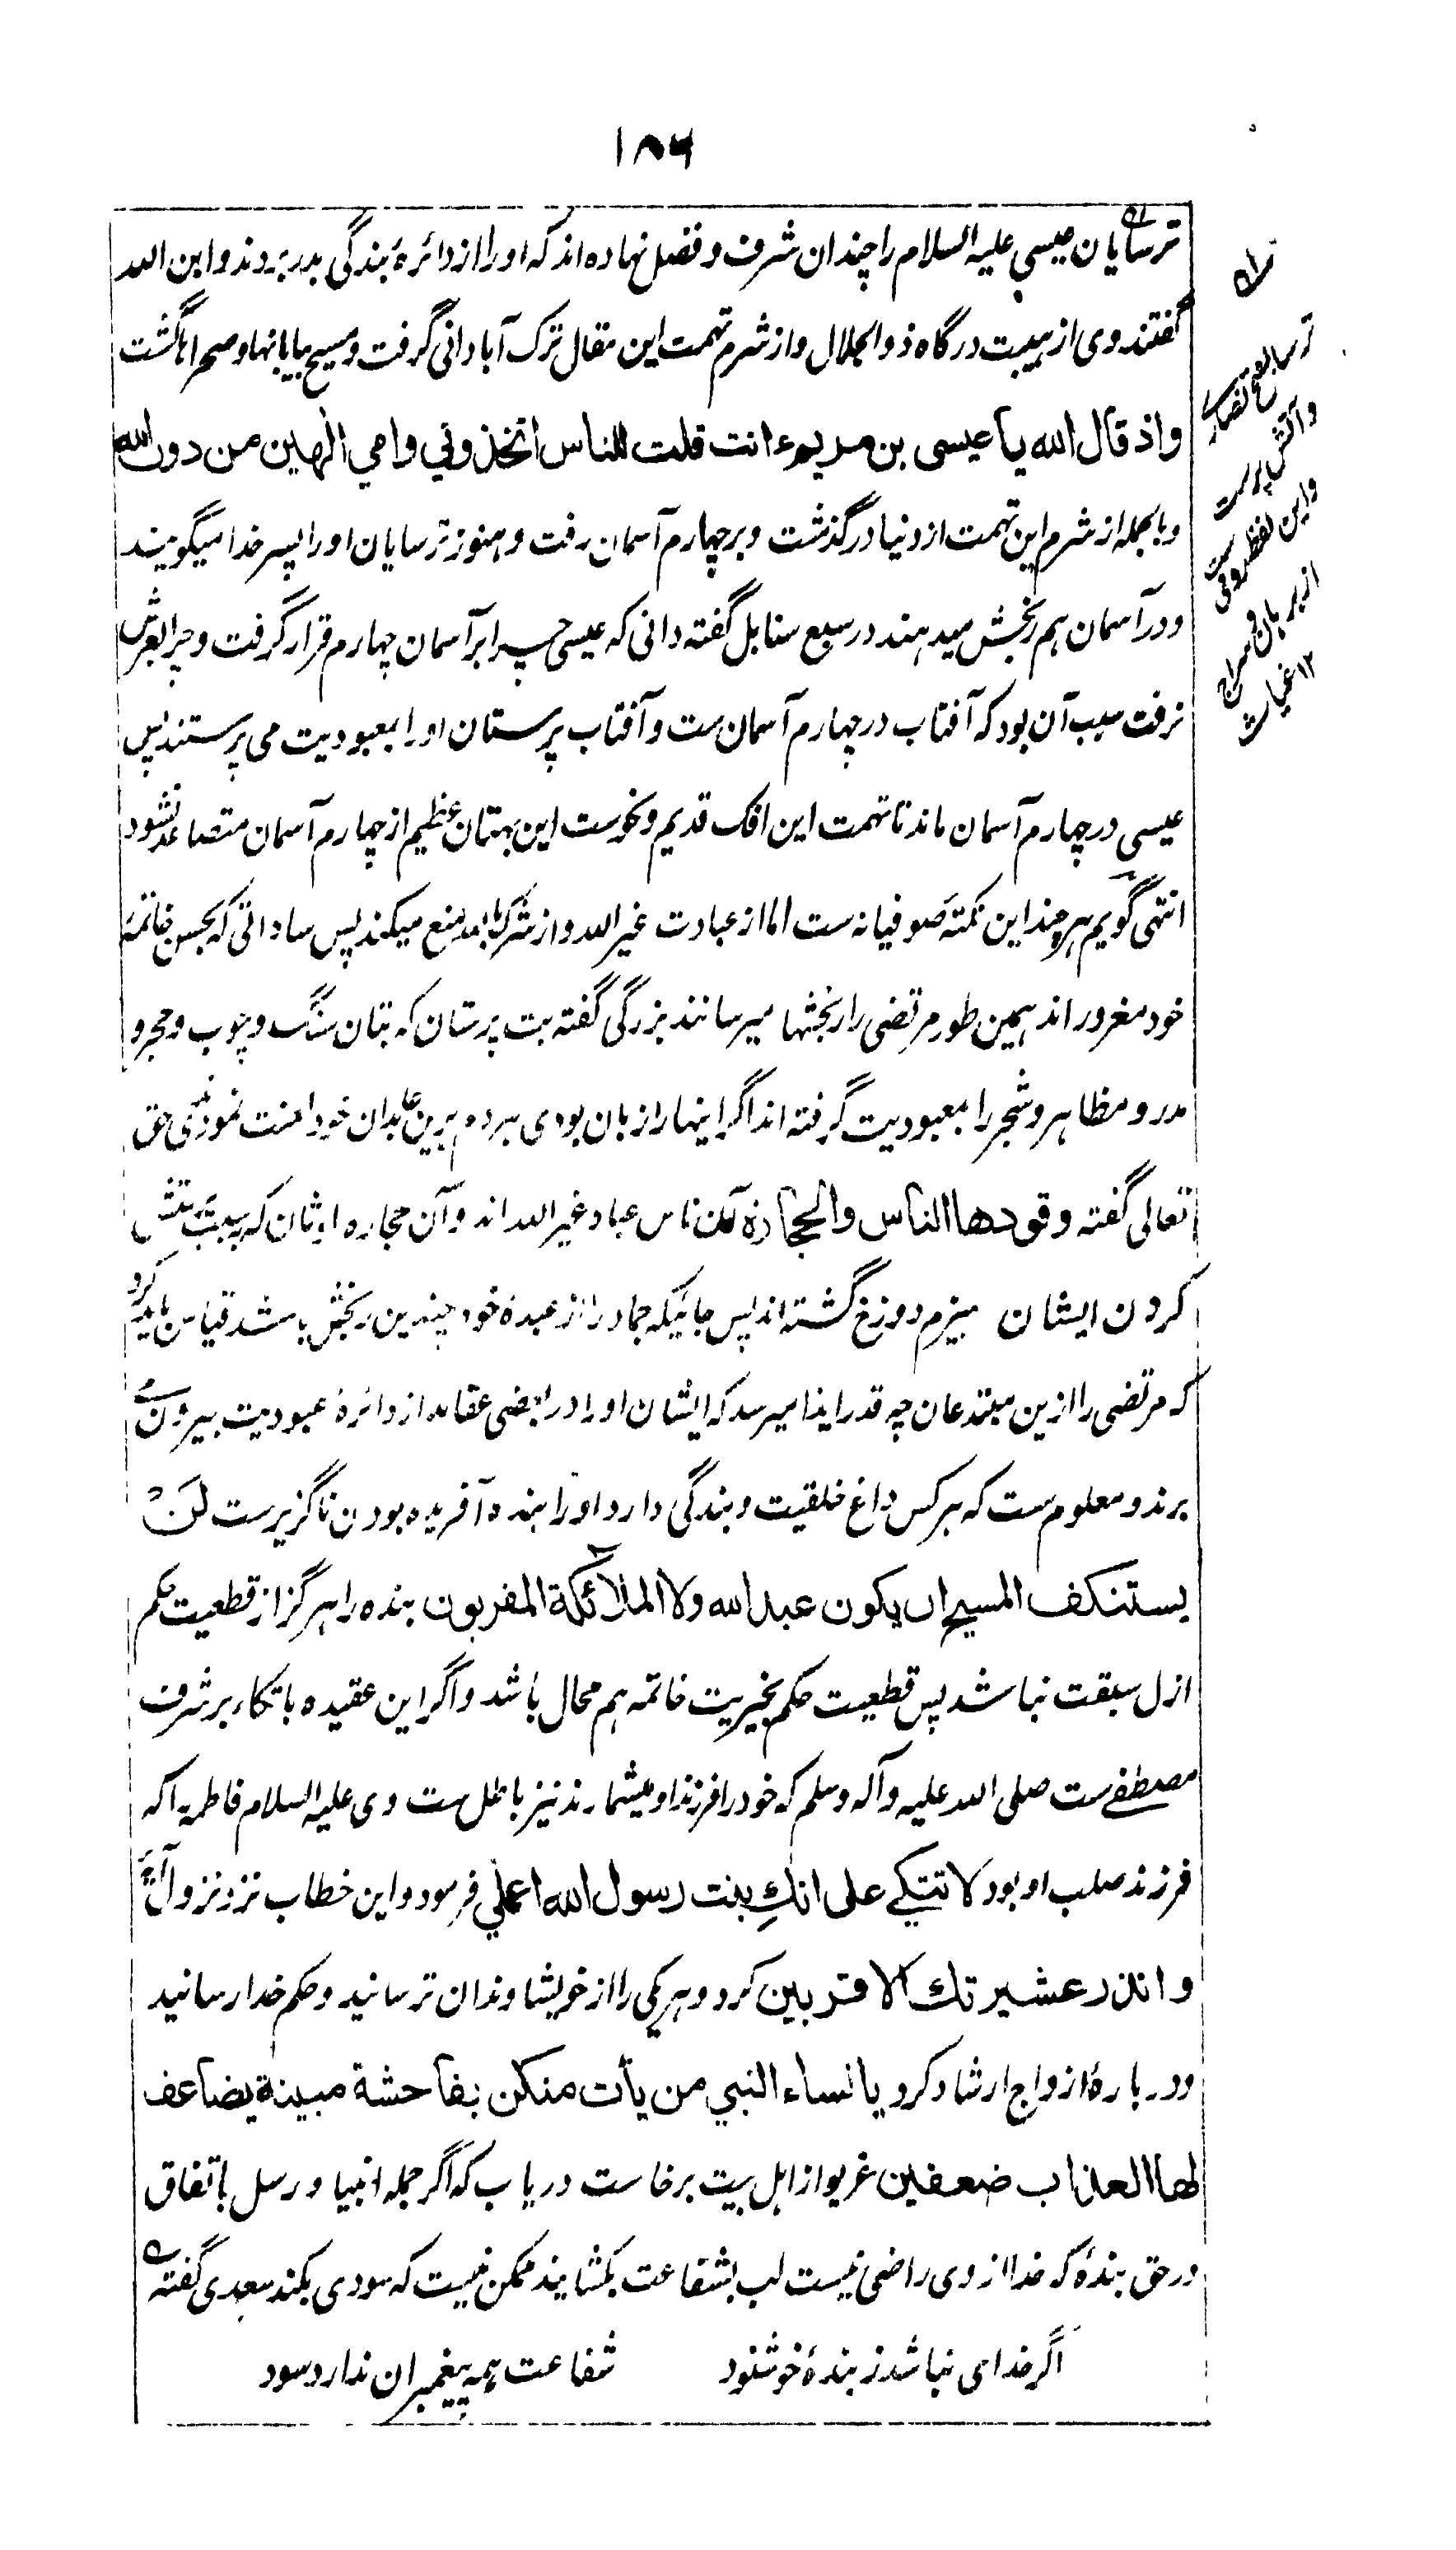 ۱۸۶
ترسایان عیسی علیہ السلام را چندان شرف و فضل نہادہ اند کہ او را از دائرۂ بندگی بدر بردند و ابن اللہ
گفتند وی از ہیبت درگاہ ذوالجلال و از شرم تہمت این مقال ترک آبادانی گرفت و مسیح بیابانہا و صحراہا گشت
واذ قال الله يا عيسى بن مريم ءانت قلت للناس اتخذوني وامي الهين من دون الله
و بالجملہ از شرم این تہمت از دنیا درگذشت و بر چہارم آسمان رفت و ہنوز ترسایان او را پسر خدا میگویند
و در آسمان ہم رنجش میدہند در سبع سنابل گفتہ دانی کہ عیسی چرا بر آسمان چہارم قرار گرفت و چرا بعرش
نرفت سبب آن بود کہ آفتاب در چہارم آسمان ست و آفتاب پرستان او را بمعبودیت می پرستند پس
عیسی در چہارم آسمان ماند تا تہمت این افک قدیم و نحوست این بہتان عظیم از چہارم آسمان متصاعد نشود
انتہی گویم ہر چند این نکتۂ صوفیانہ ست اما از عبادت غیر اللہ و از شرک باللہ منع میکند پس ساداتی کہ بحسن خاتمۂ
خود مغرور اند ہمین طور مرتضی را رنجشہا میرسانند بزرگی گفتہ بت پرستان کہ بتان سنگ و چوب و حجر و
مدر و مظاہر و شجر را بمعبودیت گرفتہ اند اگر اینہا را زبان بودی ہر دم برین عابدان خود لعنت نمودندی حق
تعالی گفتہ وقودها الناس والحجارة آن ناس عباد غیر اللہ اند و آن حجارہ اوثان کہ بسبب پرستش
کردن ایشان ہیزم دوزخ گشتہ اند پس جائیکہ جماد را از عبدۂ خود چندین رنجش باشد قیاس باید کرد
کہ مرتضی را ازین مبتدعان چہ قدر ایذا میرسد کہ ایشان او را در بعضی عقاید از دائرۂ عبودیت بیرون می
برند و معلوم ست کہ ہر کس داغ خلقیت و بندگی دارد او را بندہ آفریدہ بودن ناگزیر ست لن
يستنكف المسيح ان يكون عبدالله ولا الملائكة المقربون بندہ را ہرگز از قطعیت حکم
ازل سبقت نباشد پس قطعیت حکم بخیریت خاتمہ ہم محال باشد و اگر این عقیدہ باتکاء بر شرف
مصطفے ست صلی اللہ علیہ وآلہ وسلم کہ خود را فرزند او میشمارند نیز باطل ست وی علیہ السلام فاطمہ را کہ
فرزند صلب او بود لا تتكي على انكِ بنت رسول الله اعملي فرمود و این خطاب نزد نزول آیۂ
وانذر عشيرتك الاقربين کرد و ہر یکی را از خویشاوندان ترسانید و حکم خدا رسانید
و در بارۂ ازواج ارشاد کرد يا نساء النبي من يأت منكن بفاحشة مبينة يضاعف
لها العذاب ضعفين غریو از اہل بیت برخاست دریاب کہ اگر جملہ انبیا و رسل باتفاق
در حق بندۂ کہ خدا از وی راضی نیست لب بشفاعت بکشایند ممکن نیست کہ سودی بکند سعدی گفتہ
اگر خدای نباشد ز بندۂ خوشنود شفاعت ہمہ پیغمبران ندارد سود
ترسا بفتح نصاری
و آتش پرست
و این لفظ رومی ست
از برہان و سراج
۱۲ غیاث